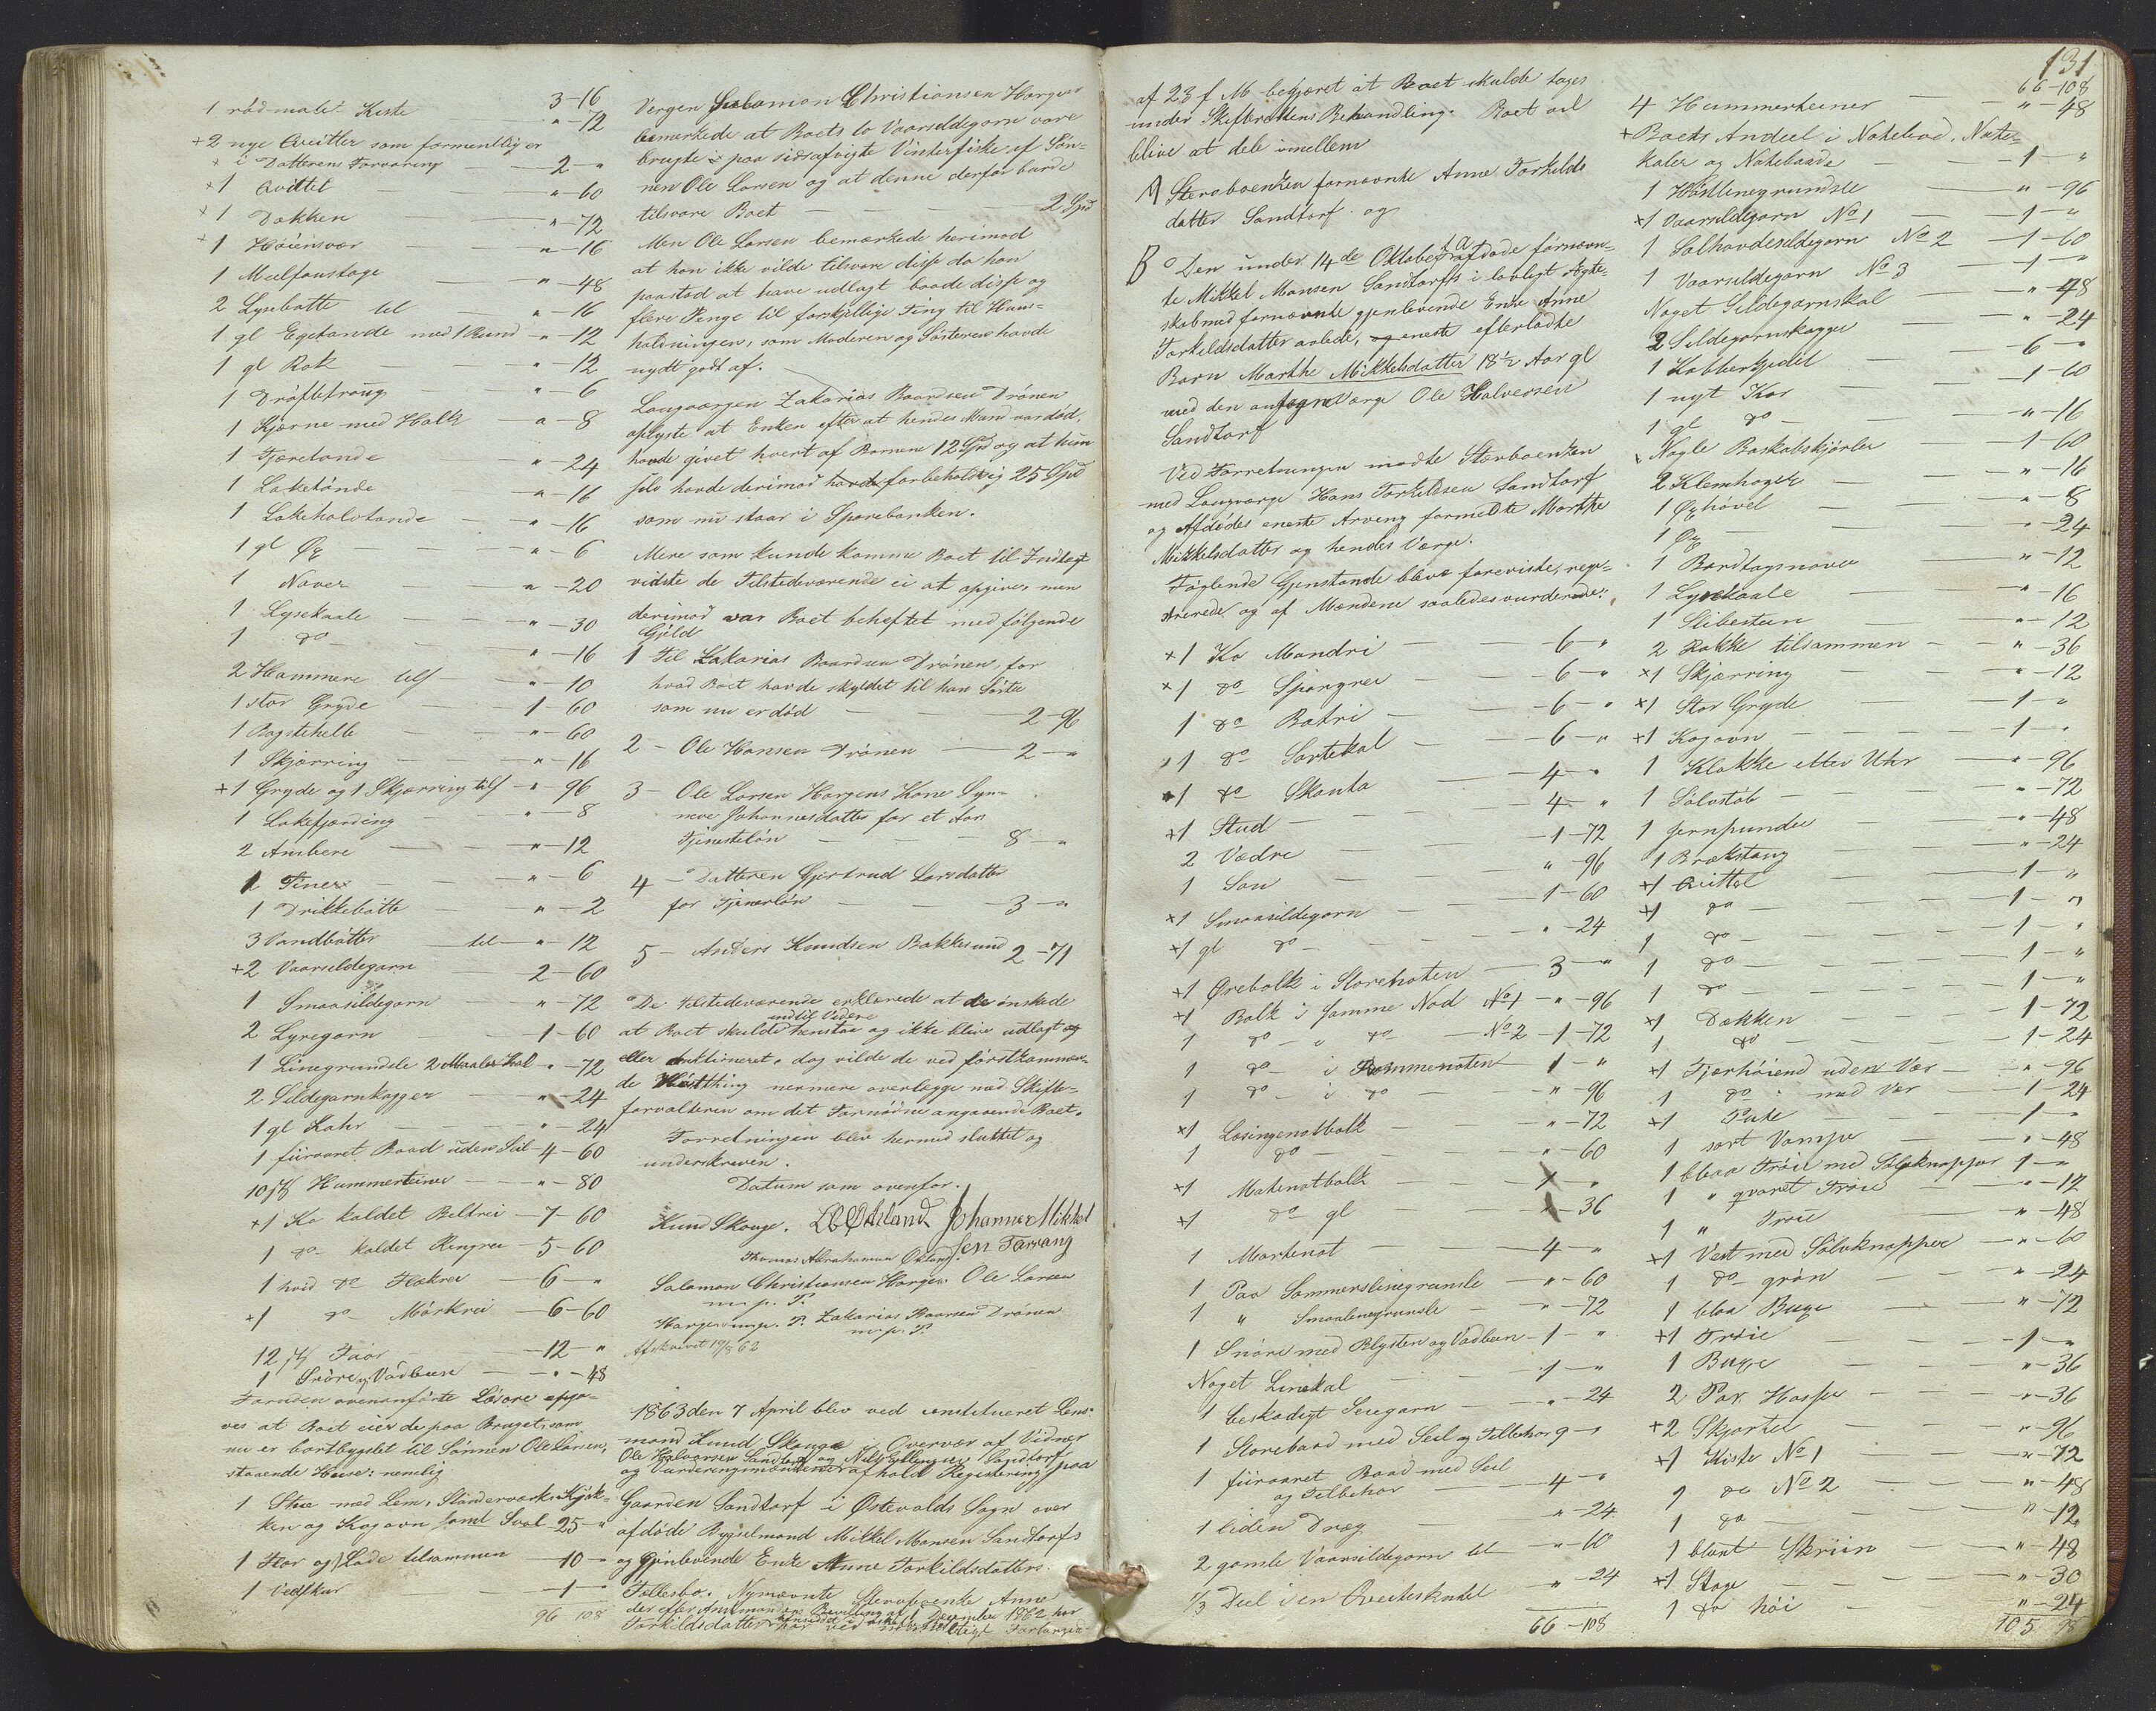 3-16
1 rödmalet Kiste " -72
+2 nye Qvitler som formentlig er
+ i Datterens Forvaring 2 - "
+1 Qvittel " -60
+1 Dækken " -72
+1 Höiensvær " -16
1 Meelfoustage " -48
2 Lysebøtte til " -16
1 gl Egetønde med 1 Bund " -12
1 gl Rok " -12
1 Dröftetroug " -6
1 Kjærne med Holk " -8
1 Tjæretønde " -24
1 Laketönde " -16
1 Lakehalvtønde " -16
1 gl Øx " -6
1 Naver " -20
1 Lysekaale " -30
1 do " -16
2 Hammere tils " -10
1 stor Gryde 1-60
1 Bagstehelle " -60
1 Skjørring " -16
+1 Gryde og 1 Skjørring tils " 96
1 Lakefjærding " -8
2 Ambere " -12
1 Tiner " -6
1 Drikkebötte " -2
3 Vandbötter til " -12
+2 Vaarsildegarn 2-60
1 Smaasildegarn " -72
2 Lyregarn 1-60
1 Linegrundele 2 Maaler Kal " -72
2 Sildegarnkagger " -24
1 gl Kahr " -24
1 fiirroret Baad uden Seil 4-60
10 st Hummerteiner " -80
+1 Ko kaldet Beltrei 7-60
1 do kaldet Ringrei 5-60
1 hvid do Fløkrei 6 - "
+1 do Mörkrei 6-60
12 st Faar 12 - "
1 Snöre og Vadbeen " -48
Foruden ovenanförte Lösöre opga-
ves at Boet eier de paa Bruget, som
nu er bortbygslet til Sönnen Ole Larsen,
staaende Huse: nemlig
1 Stue med Lem, Standerværks Kjøk-
ken og Kogovn samt Sval 25 "
1 Flor og 1 Lade tilsammen 10 "
1 Vedskur 1 "
96 108
Vergen Salamon Christiansen Horgen
bemærkede at Boets to Vaarsildegarn vare
brugte paa sidsafvigte Vinterfiske af Søn-
nen Ole Larsen og at denne derfor burde
tilsvare Boet 2 Spd
Men Ole Larsen bemærkede herimod
at han ikke vilde tilsvare disse da han
paastod at have udlagt baade disse og
flere Penge til forskjellige Ting til Huus-
holdningen, som Moderen og Søsteren havde
nydt godt af.
Laugværgen Zakarias Baardsen Drönen
oplyste at Enken efter at hendes Mand var död
havde givet hvert af Børnene 12 Spd og at hun
selv havde derimod havde forbeholdt sig 25 Spd
som nu staar i Sparebanken.
Mere som kunde komme Boet til Indtægt
vidste de Tilstedeværende ei at opgive, men
derimod var Boet beheftet med fölgende
Gjæld
1 Til Zakarias Baardsen Drönen, for
hvad Boet havde skyldet til han Søster
som nu er død 2-96
2 - Ole Hansen Drönen 2 - "
3 - Ole Larsen Horgens Kone Syn-
neve Johannesdatter for et Aar
Tjenestelön 8 - "
4 - Datteren Gjertrud Larsdatter
for Tjenerlön 3 - "
5 - Anders Knudsen Bakkesund 2-71
De tilstedeværende erklærede at de önskede
indtil Videre
at Boet skulde henstaa og ikke blive udlagt og
eller auktioneret, dog vilde de ved förstkommen-
de Høstthing nermere overlegge med Skifte-
forvalteren om det Fornödne angaaende Boet.
Forretningen blev hermed sluttet og
underskreven.
Datum som ovenfor.
Knud Skouge. Johannes Mikkel
sen Tarvang
Thomas Abrahamsen Østland
Salamon Christiansen Horgen. Ole Larsen
m. p. P.
Horgen m. p. P. Zakarias Baarsen Drönen
m. p. P.
Afskrevet 19/8 62
1863 den 7 April blev ved constitueret Lens-
mand Knud Skouge i Overvær af Vidner
Ole Halvorsen Sandtorf og Nils Sandtorf
og Vurderingsmændene afholdt Registering paa
Gaarden Sandtorf i Østevolds Sogn over
afdöde Bygselmand Mikkel Monsen Sandtorfs
og Gjenlevende Enke Anne Torkildsdatters
Fællesbo. Nymævnte Sterboenke Anne
Torkildsdatter har ved
der efter Amtmandens Bevilling af December 1862 har
131
af 23 f M begjæret at Boet skulde tages
under Skifterettens Behandling. Boet vil
blive at dele imellem
A Sterboenken fornævnte Anne Torkilds
datter Sandtorf. og
B Den under 14de Oktober f. A. afdøde fornævn-
te Mikkel Monsen Sandtorfs i lovligt Ægte-
skab med fornævnte gjenlevende Enke Anne
Torkildsdatter avlede, og eneste efterladte
Barn Marthe Mikkelsdatter 18 1/2 Aar gl
med den antagne Værge Ole Halvorsen
Sandtorf
Ved Forretningen mødte Stærboenken
med Laugværge Hans Torkildsen Sandtorf
og Afdødes eneste Arving formeldte Marthe
Mikkelsdatter og hendes Værge.
Følgende Gjenstande bleve foreviste, regi-
strerede og af Mændene saaledes vurderede:
+1 Ko Mandri 6 "
+1 do Spongrei 6 "
1 do Botri 6 "
+1 do Sortekol 6 "
+1 do Skanta 4 "
+1 Stud 4 "
2 Vædre 1-72
1 Sou " -96
+1 Smaasildegarn 1-60
+1 gl do " -24
+1 Ørebolk i Storenoten 3 "
+1 Bolk i samme Nod No 1 " -96
1 do " do No 2 1-72
1 do i Rommenoten 1 - "
1 do i do " -96
+1 Løsingenotbolk " -72
1 do " -60
+1 Makenotbolk 1 - "
+1 do gl " -36
1 Mortenot 4 - "
1 Paa Sommerslinegrunsle " -60
1 " Smaalinegrunsle " -72
1 Snöre med Blysten og Vadbeen 1 - "
Noget Linekal 1 - "
1 beskadigt Seiegarn " -24
1 Storebaad med Seil og Tilbehør 9 - "
1 fiirroret Baad med Seil
og Tilbehør 4 - "
1 liden Dræg " -24
2 gamle Vaarsildegarn til " -60
1/3 Deel i en Qveiteskudel " -24
66-108
66-108
4 Hummerteiner " -48
+Boets Andeel i Notebrod. Note-
kaler og Notebaade 1 - "
1 Höstlinegrundsle " -96
+1 Vaarsildegarn No 1 1 - "
1 Solhovdesildegarn No 2 1-60
1 Vaarsildegarn No 3 1 - "
Noget Sildegarnskal " -48
2 Sildegarnskagger " -24
1 Kobberkjedel 6 "
1 nyt Kar 1-60
1 gl do " -16
Nogle Boskabskjørler 1-60
2 Klemhager " -16
1 Øxhövel " -8
1 Øx " -24
1 Bordtagsnaver " -12
1 Lysekaale " -16
1 Slibesteen " -12
2 Rokke tilsammen " -36
+1 Skjørring " -12
+1 Stor Gryde 1 - "
+1 Kogovn 1 - "
1 Klokke eller Uhr " -96
1 Sölvstöb " -72
1 Jernpunder " -48
1 Brækstang " -24
+1 Qvittel 1 - "
+1 do 1 - "
1 do 1 - "
1 do 1 - "
1 do 1 - "
+1 Dækken 1-72
1 do 1-24
+1 Fjærhöiend uden Vær " -96
1 do med Vær 1-24
+1 Pute 1 - "
1 sort Vampe " -48
1 blaa Tröie med Sölvknapper 1 - "
1 " qvaret Tröie " -12
1 " Tröie " -48
+1 Vest med Sölvknapper " -60
1 do grön " -24
1 blaa Buxe " -72
+1 Tröie 1 - "
1 Buxe " -36
2 Par Hosser " -36
+2 Skjorter " -96
+1 Kiste No 1 " -72
1 do No 2 " -48
1 do " -12
1 blaat Skriin " -48
+1 Stage " -30
1 do höi " -24
105 98